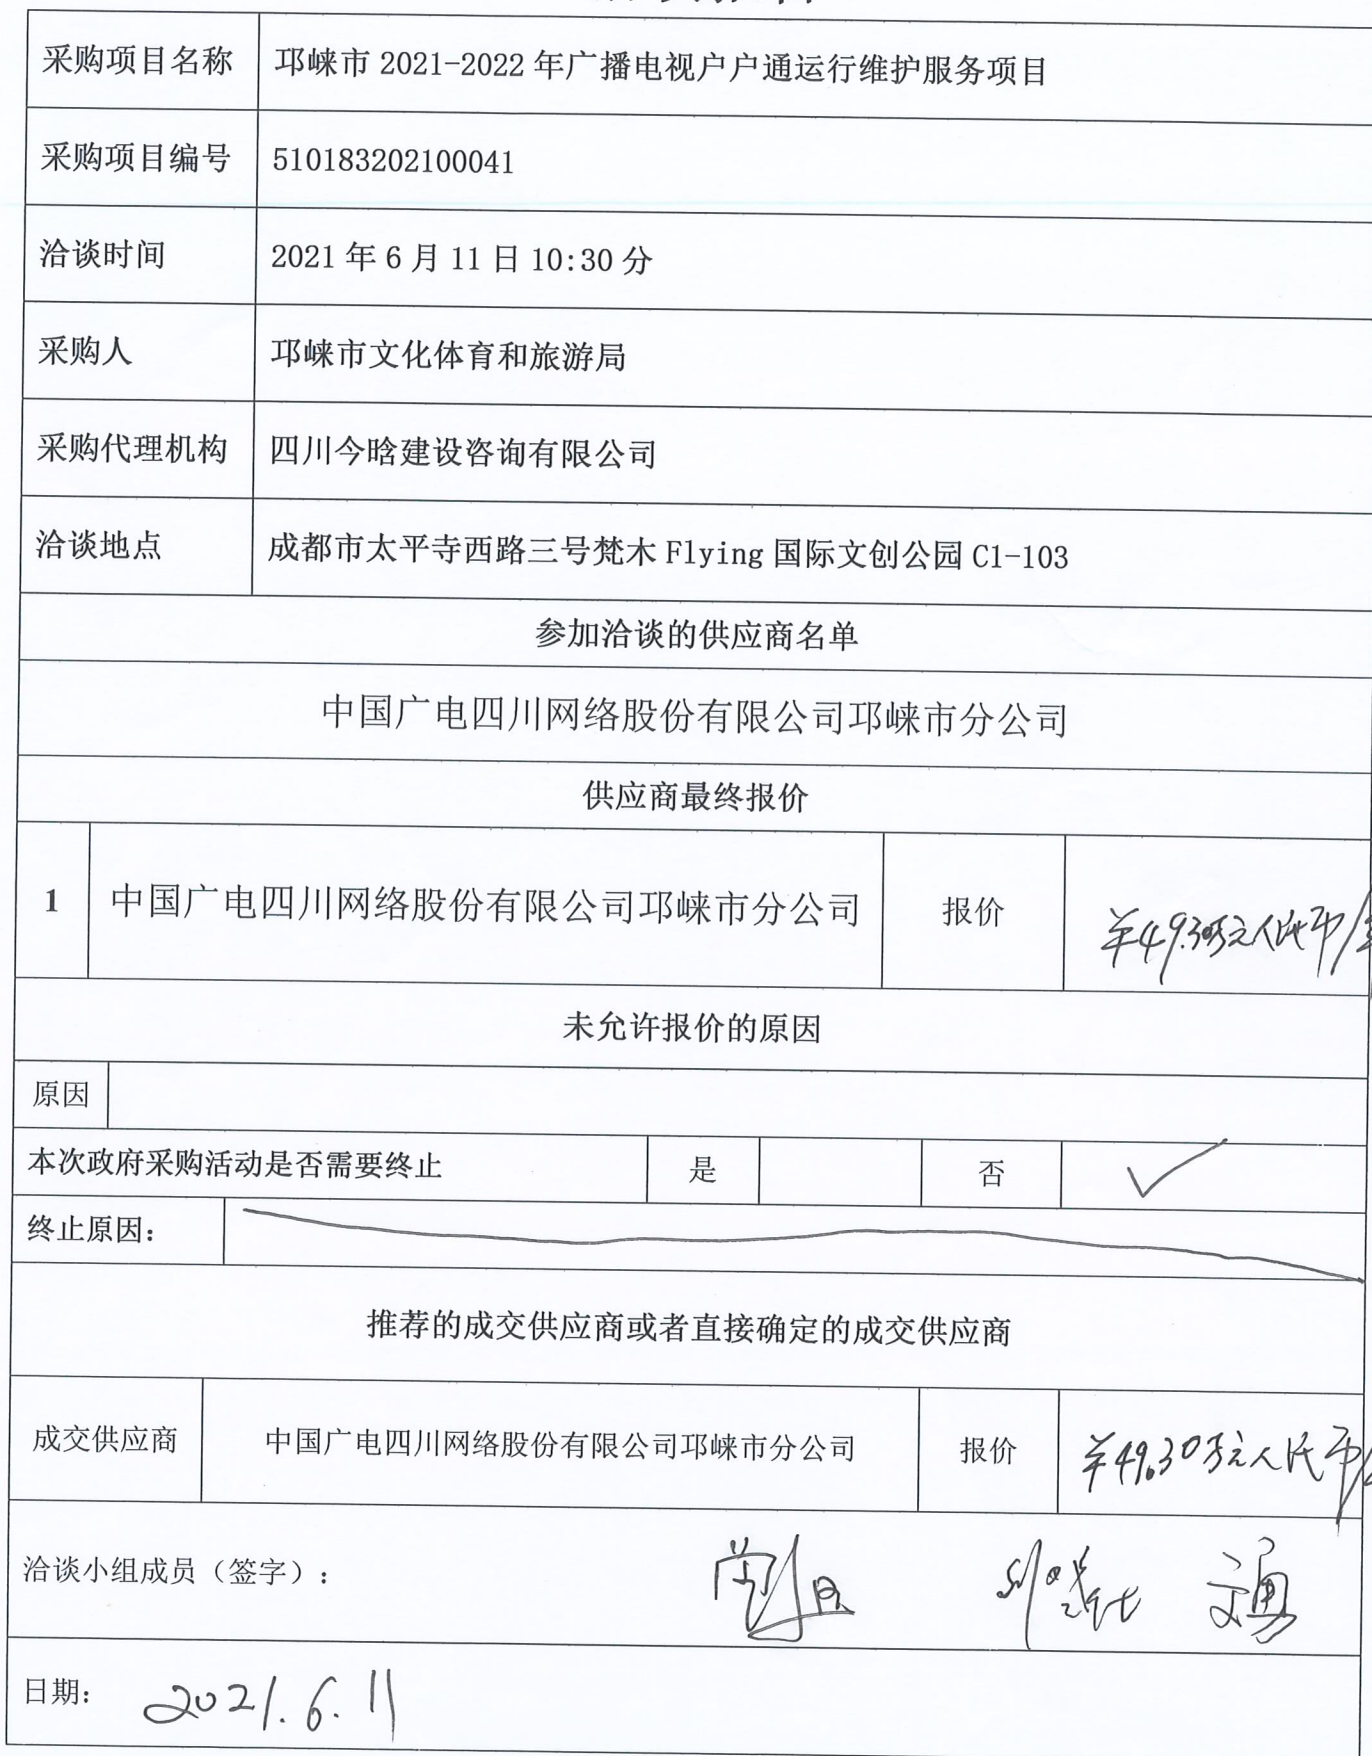 采购项目名称 邛崃市 2021-2022 年广播电视户户通运行维护服务项目
采购项目编号 510183202100041
洽谈时间 2021 年 6 月 11 日 10:30 分
采购人 邛崃市文化体育和旅游局
采购代理机构 四川今晗建设咨询有限公司
洽谈地点 成都市太平寺西路三号梵木 Flying 国际文创公园 C1-103
参加洽谈的供应商名单
中国广电四川网络股份有限公司邛崃市分公司
供应商最终报价
1 中国广电四川网络股份有限公司邛崃市分公司 报价 ¥49.30万元人民币/
未允许报价的原因
原因
本次政府采购活动是否需要终止 是 否 ✓
终止原因:
推荐的成交供应商或者直接确定的成交供应商
成交供应商 中国广电四川网络股份有限公司邛崃市分公司 报价 ¥49.30万元人民币/
洽谈小组成员（签字）:
日期: 2021.6.11